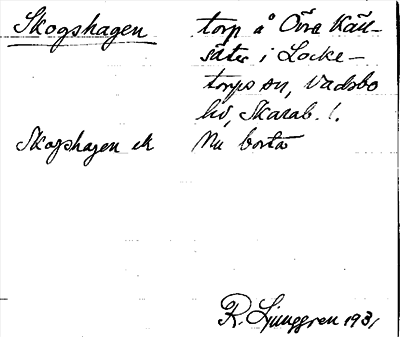 Skogshagen torp å Övre Kän-
säter i Locke-
torps sn, Vadsbo
hd, Skarab. l.
Skogshagen ek Nu borta
R. Ljunggren 1931